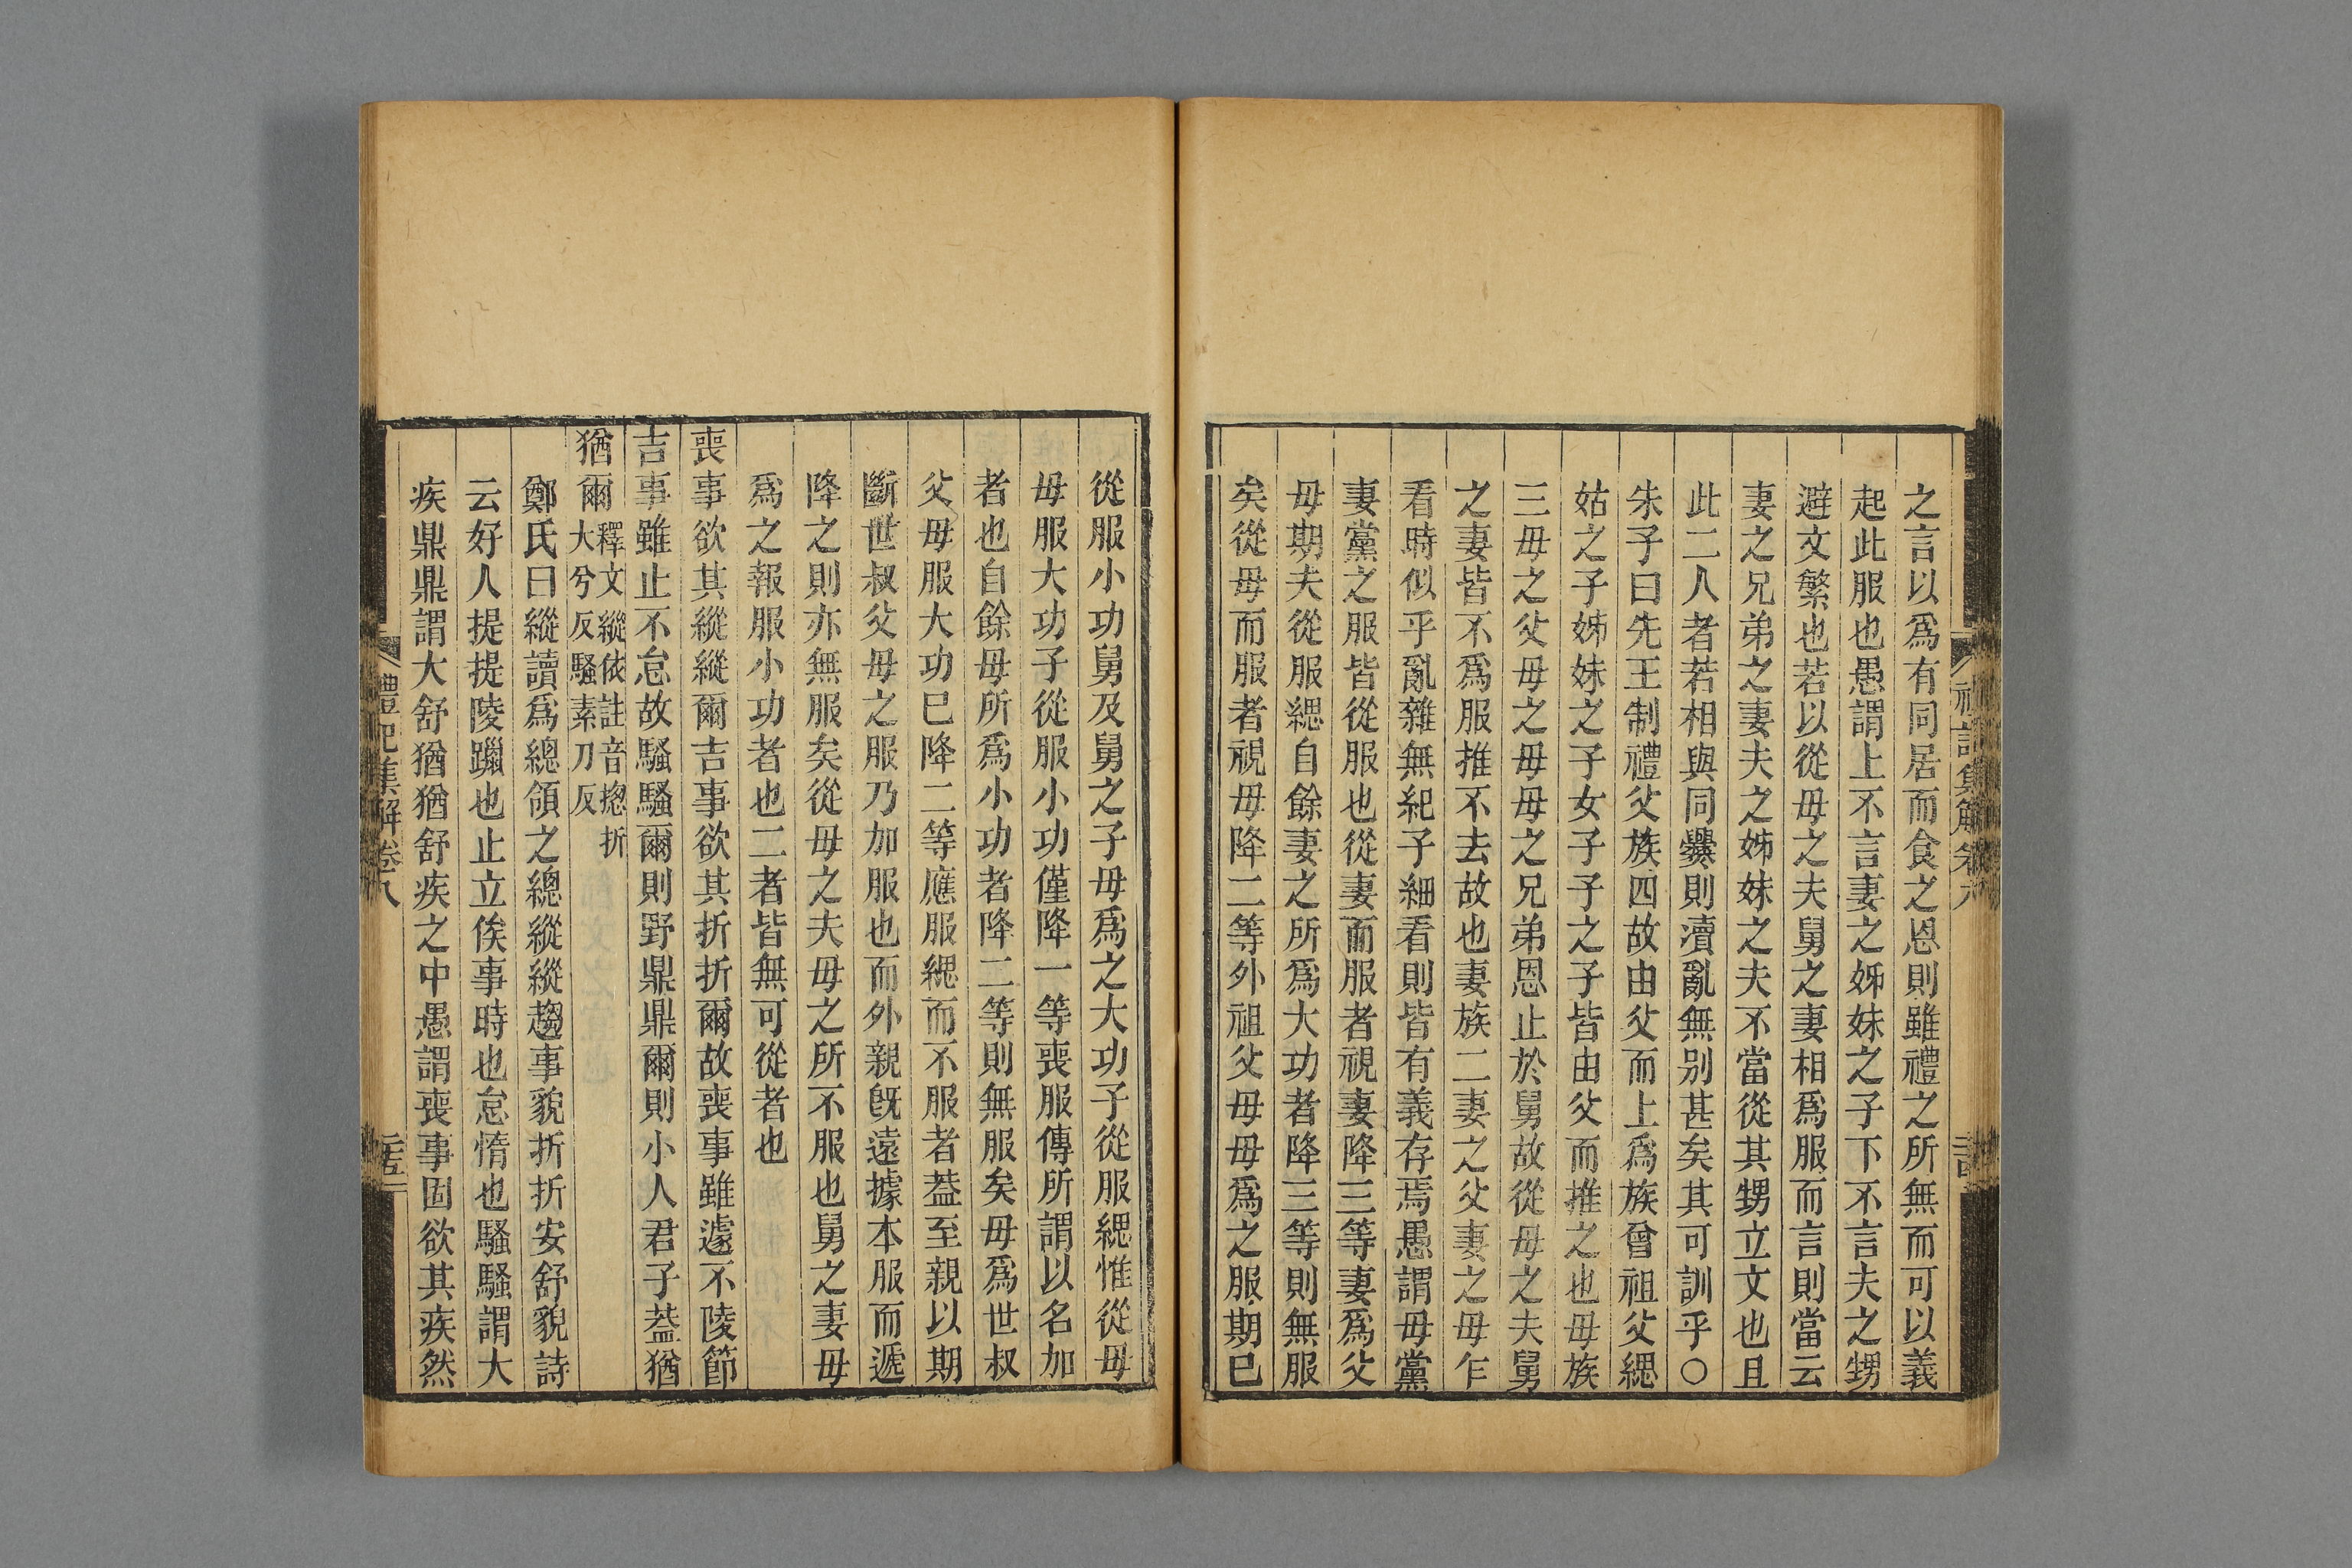 之言以爲有同居而食之恩則雖禮之所無而可以義
起此服也愚謂上不言妻之姊妹之子下不言夫之甥
避文繁也若以從母之夫舅之妻相爲服而言則當云
妻之兄弟之妻夫之姊妹之夫不當從其甥立文也且
此二人者若相與同爨則瀆亂無别甚矣其可訓乎○
朱子曰先王制禮父族四故由父而上爲族曾祖父緦
姑之子姊妹之子女子子之子皆由父而推之也母族
三母之父母之母母之兄弟恩止於舅故從母之夫舅
之妻皆不爲服推不去故也妻族二妻之父妻之母乍
看時似乎亂雜無紀子細看則皆有義存焉愚謂母黨
妻黨之服皆從服也從妻而服者視妻降三等妻爲父
母期夫從服緦自餘妻之所爲大功者降三等則無服
矣從母而服者視母降二等外祖父母母爲之服期已
從服小功舅及舅之子母爲之大功子從服緦惟從母
母服大功子從服小功僅降一等喪服傳所謂以名加
者也自餘母所爲小功者降二等則無服矣母爲世叔
父母服大功已降二等應服緦而不服者葢至親以期
斷世叔父母之服乃加服也而外親旣遠據本服而遞
降之則亦無服矣從母之夫母之所不服也舅之妻母
爲之報服小功者也二者皆無可從者也
喪事欲其縱縱爾吉事欲其折折爾故喪事雖遽不陵節
吉事雖止不怠故騷騷爾則野鼎鼎爾則小人君子葢猶
猶爾釋文縱依註音揔折
大兮反騷素刀反
鄭氏曰縱讀爲總領之總縱縱趨事貌折折安舒貌詩
云好人提提陵躐也止立俟事時也怠惰也騷騷謂大
疾鼎鼎謂大舒猶猶舒疾之中愚謂喪事固欲其疾然
禮記集解卷八